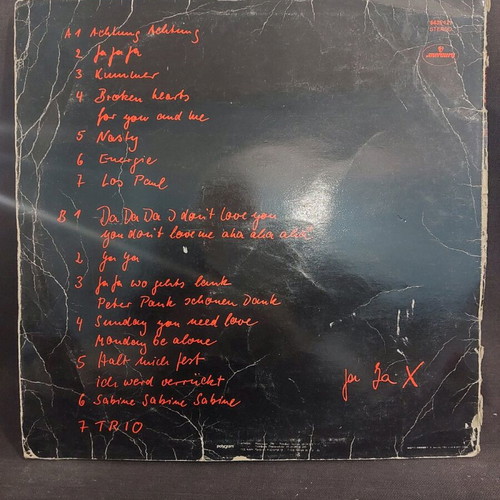 A1 Achtung Achtung
2 Ja Ja Ja
3 Kummer
4 Broken hearts
for you and me
5 Nasty
6 Energie
7 Los Paul
B1 Da Da Da I don't love you
you don't love me aha aha aha
2 Ya Ya
3 Ja Ja wo gehts lank
Peter Pank schönen Dank
4 Sunday you need love
Monday be alone
5 Halt mich fest
ich werd verrückt
6 Sabine Sabine Sabine
7 TRIO
Ja Ja X
mercury